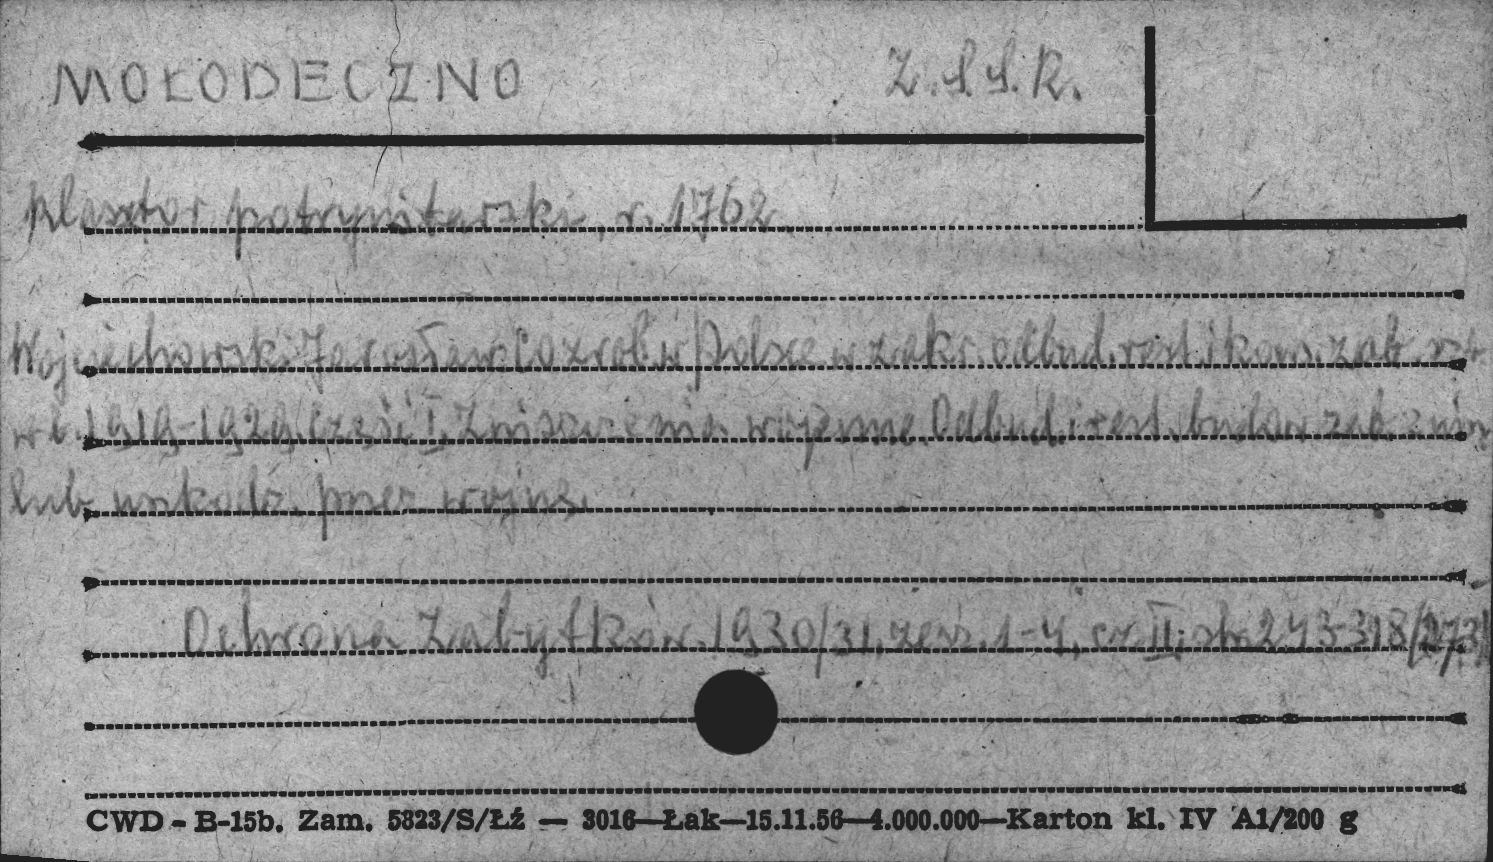 MOŁODECZNO Z.S.S.R.
klasztor potrynitarski, r. 1762
Wojciechowski Jarosław: Co zrob. w Polsce w zakr. odbud. rest. i kons. zab.
w l. 1919-1929. Część I. Zniszczenia wojenne. Odbud. i rest. budow. zab.
lub uszkodz. przez wojnę.
Ochrona Zabytków. 1930/31, zesz. 1-4, cz. II; str. 243-318/273/
CWD - B-15b. Zam. 5823/S/Łź — 3016—Łak—15.11.56—4.000.000—Karton kl. IV A1/200 g